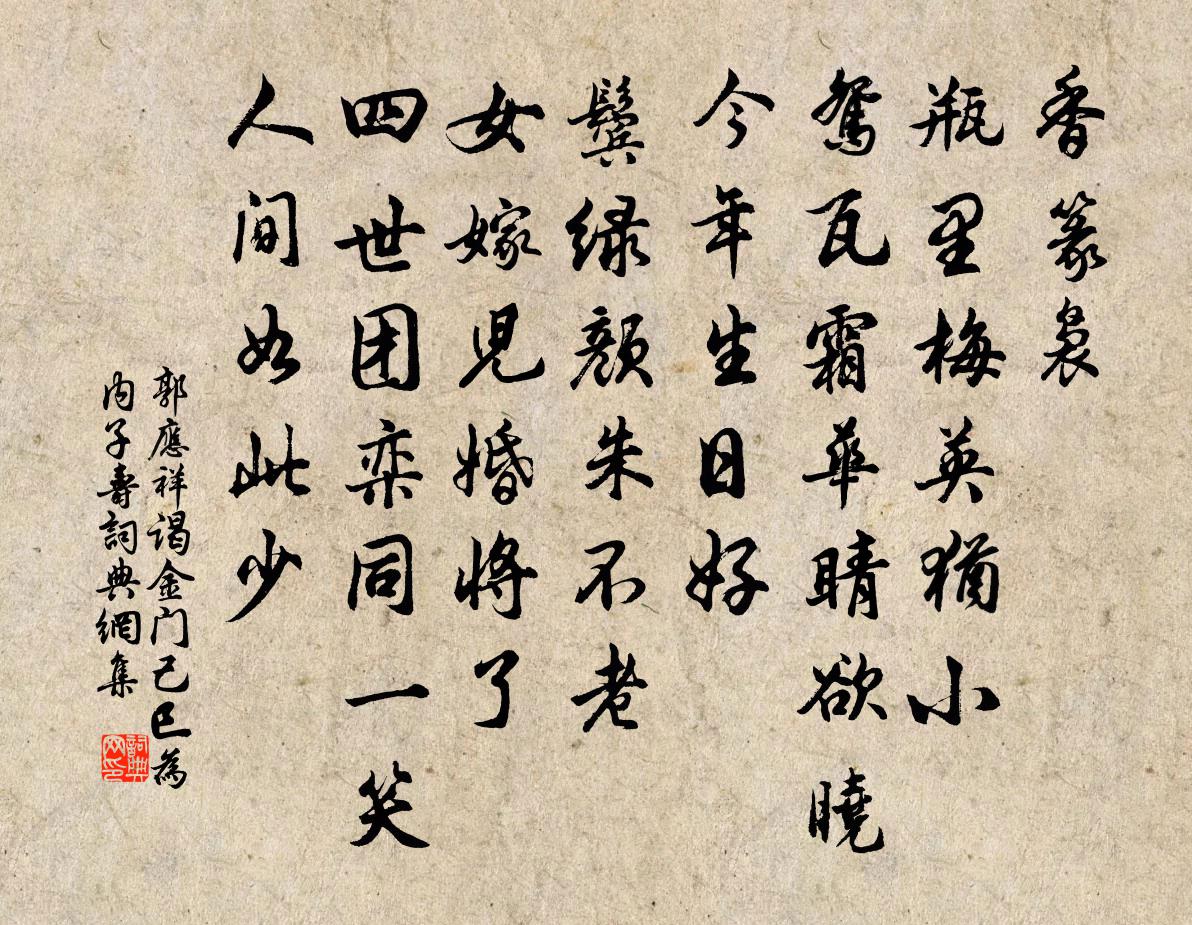 香篆袅
瓶里梅英犹小
鸳瓦霜华晴欲晓
今年生日好
鬓绿颜朱不老
女嫁儿婚将了
四世团栾同一笑
人间如此少
郭應祥谒金门己巳為
内子壽詞典網集
詞典网印